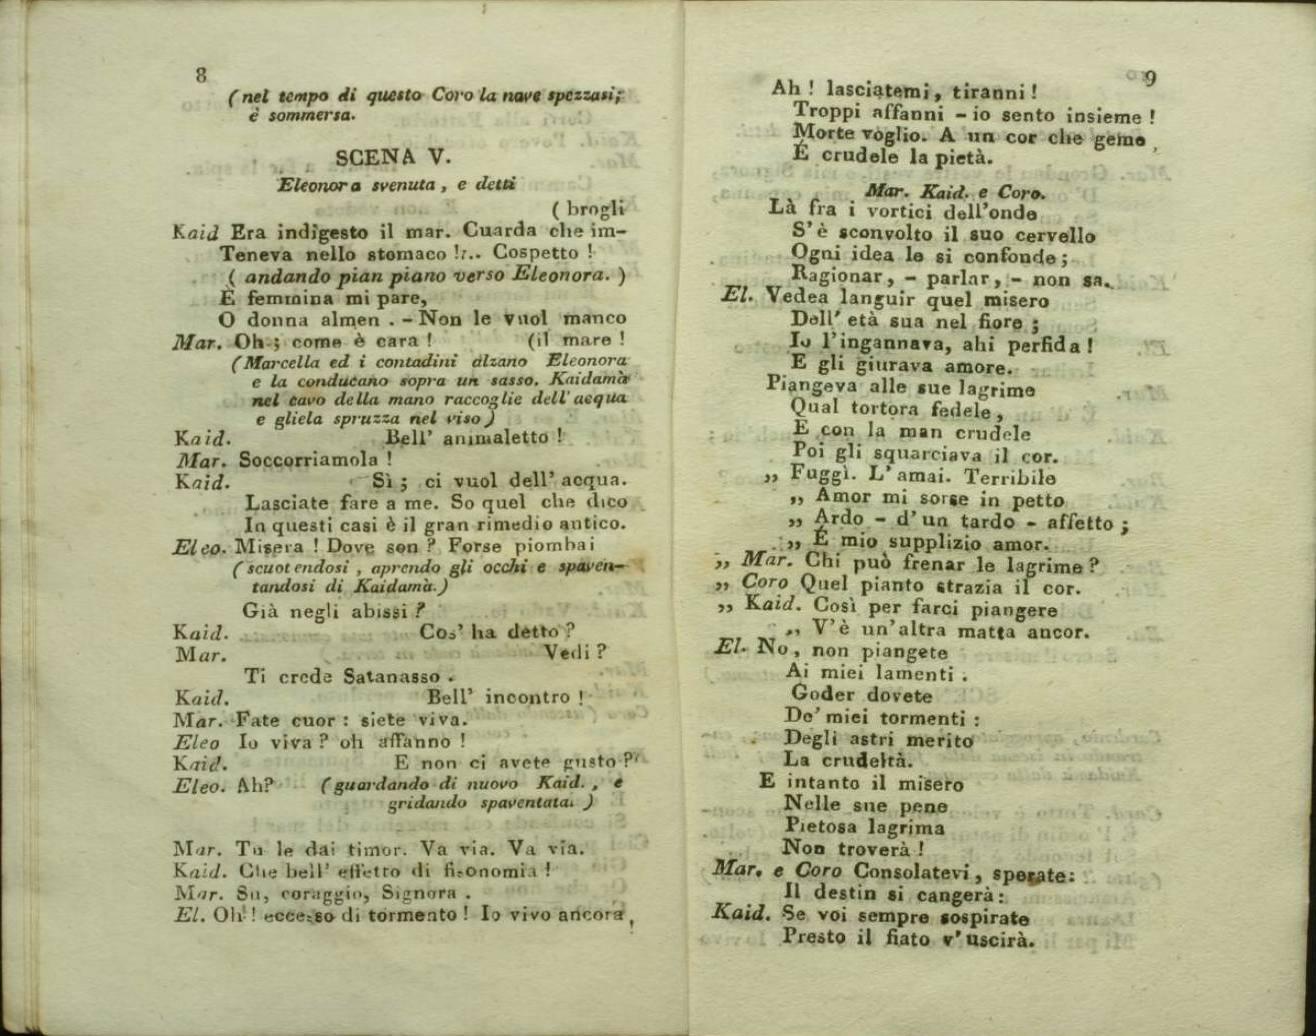 8
(nel tempo di questo Coro la nave spezzasi;
è sommersa.
SCENA V.
Eleonora svenuta, e detti
( brogli
Kaid Era indigesto il mar. Cuarda che im-
Teneva nello stomaco !.. Cospetto !
( andando pian piano verso Eleonora. )
È femmina mi pare,
O donna almen . - Non le vuol manco
Mar. Oh ; come è cara ! (il mare !
(Marcella ed i contadini alzano Eleonora
e la conducano sopra un sasso. Kaidamà
nel cavo della mano raccoglie dell' acqua
e gliela spruzza nel viso )
Kaid. Bell' animaletto !
Mar. Soccorriamola !
Kaid. Sì ; ci vuol dell' acqua.
Lasciate fare a me. So quel che dico
In questi casi è il gran rimedio antico.
Eleo. Misera ! Dove son ? Forse piombai
( scuotendosi , aprendo gli occhi e spaven-
tandosi di Kaidamà.)
Già negli abissi ?
Kaid. Cos' ha detto ?
Mar. Vedi ?
Ti crede Satanasso .
Kaid. Bell' incontro !
Mar. Fate cuor : siete viva.
Eleo Io viva ? oh affanno !
Kaid. E non ci avete gusto ?
Eleo. Ah? (guardando di nuovo Kaid. , e
gridando spaventata. )
Mar. Tu le dai timor. Va via. Va via.
Kaid. Che bell' effetto di fisonomia !
Mar. Su, coraggio, Signora .
El. Oh ! eccesso di tormento ! Io vivo ancora,
9
Ah ! lasciatemi, tiranni !
Troppi affanni - io sento insieme !
Morte voglio. A un cor che geme
È crudele la pietà.
Mar. Kaid. e Coro.
Là fra i vortici dell'onde
S'è sconvolto il suo cervello
Ogni idea le si confonde ;
Ragionar, - parlar, - non sa.
El. Vedea languir quel misero
Dell' età sua nel fiore ;
Io l'ingannava, ahi perfida !
E gli giurava amore.
Piangeva alle sue lagrime
Qual tortora fedele,
E con la man crudele
Poi gli squarciava il cor.
,, Fuggì. L'amai. Terribile
,, Amor mi sorse in petto
,, Ardo - d'un tardo - affetto ;
,, È mio supplizio amor.
,, Mar. Chi può frenar le lagrime ?
,, Coro Quel pianto strazia il cor.
,, Kaid. Così per farci piangere
,, V'è un'altra matta ancor.
El. No, non piangete
Ai miei lamenti .
Goder dovete
De' miei tormenti :
Degli astri merito
La crudeltà.
E intanto il misero
Nelle sue pene
Pietosa lagrima
Non troverà !
Mar. e Coro Consolatevi, sperate:
Il destin si cangerà:
Kaid. Se voi sempre sospirate
Presto il fiato v' uscirà.